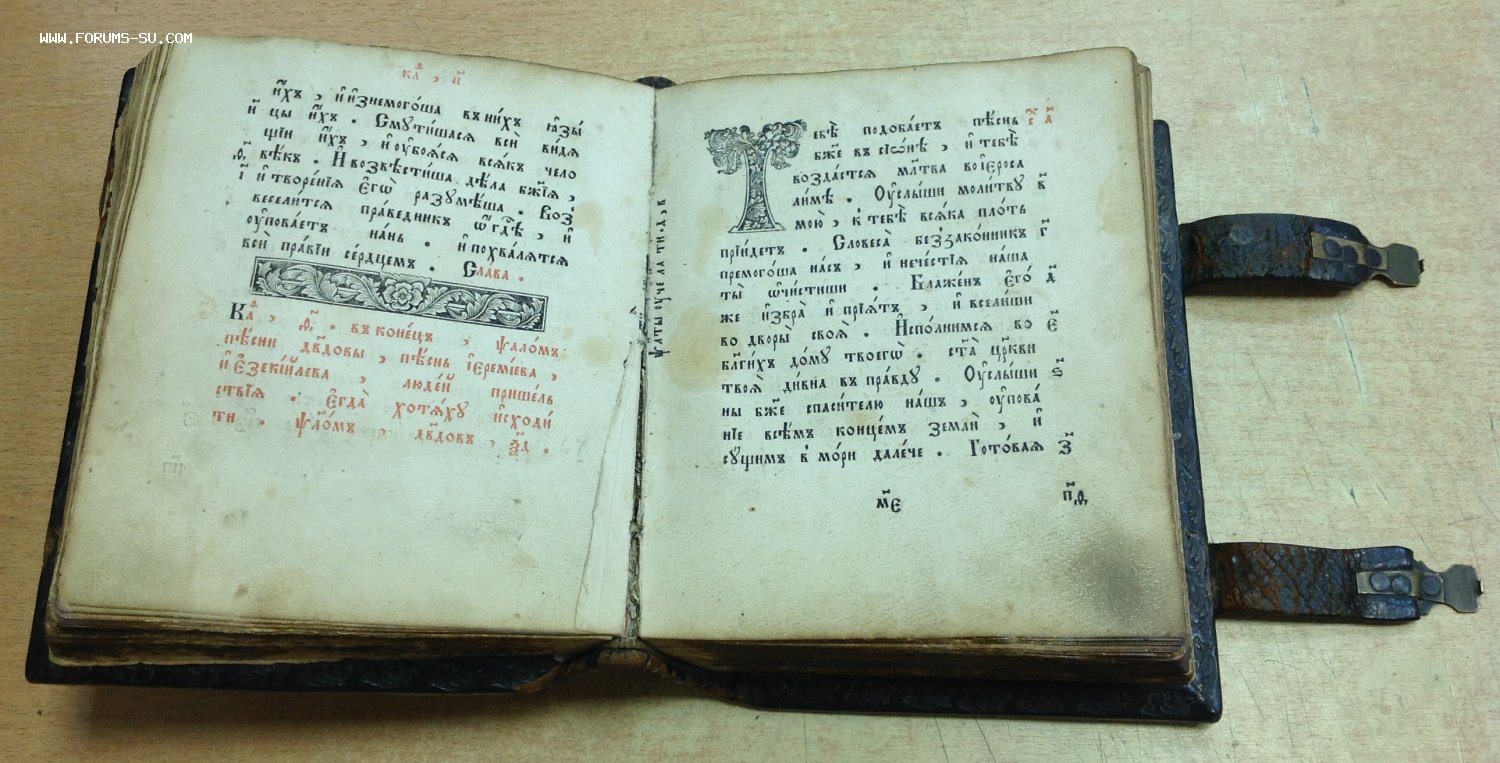 WWW.FORUMS-SU.COM
и҆́хъ , и҆ и҆знемого́ша въ ни́хъ ꙗ҆зы́
и҆ цы и҆́хъ . Смути́шасѧ всѝ ви́дѧ
щїи и҆́хъ , и҆ ᲂу҆боѧ́сѧ всѧ́къ чело
ѳ҃ вѣ́къ . И҆ возвѣсти́ша дѣла̀ бж҃їѧ ,
і҃ и҆ творе́нїѧ є҆гѡ̀ разꙋмѣ́ша . Воз
весели́тсѧ пра́ведникъ ѡ҆ гдⷭ҇ѣ , и҆
ᲂу҆пова́етъ на́нь . и҆ похва́лѧтсѧ
всѝ пра́вїи се́рдцемъ . Сла́ва .
Каⷴ , ѳ҃ . въ коне́цъ , ѱало́мъ
пѣ́сни дв҃довы , пѣ́снь і҆еремі́ева ,
и҆ є҆зекі́йлева , люде́й прише́ль
ствїѧ . є҆гда̀ хотѧ́хꙋ и҆сходи́
ти . ѱало́мъ , дв҃довъ , ѯ҃д .
Тебѣ̀ подоба́етъ пѣ́снь
бж҃е въ сїѡ́нѣ , и҆ тебѣ̀
возда́стсѧ мл҃тва во і҆ероса
ли́мѣ . Оу҆слы́ши моли́твꙋ в҃
мою̀ , к̾ тебѣ̀ всѧ́ка пло́ть
прїи́детъ . Словеса̀ беззако́нникъ г҃
премого́ша на́съ , и҆ нече́стїѧ на́ша
ты̀ ѡ҆чи́стиши . Блаже́нъ є҆го́ д҃
же и҆збра̀ и҆ прїѧ́тъ , и҆ всели́ши
во дворы̀ своѧ̀ . И҆спо́лнимсѧ во є҃
бл҃ги́хъ до́мꙋ твоегѡ̀ . ст҃а̀ цр҃кви
твоѧ̀ ди́вна въ пра́вдꙋ . Оу҆слы́ши ѕ҃
ны бж҃е спаси́телю на́шъ , ᲂу҆пова́
нїе всѣ́мъ конце́мъ землѝ , и҆
сꙋ́щимъ в̾ мо́ри дале́че . Гото́ваѧ з҃
м҃є
п҃ѳ